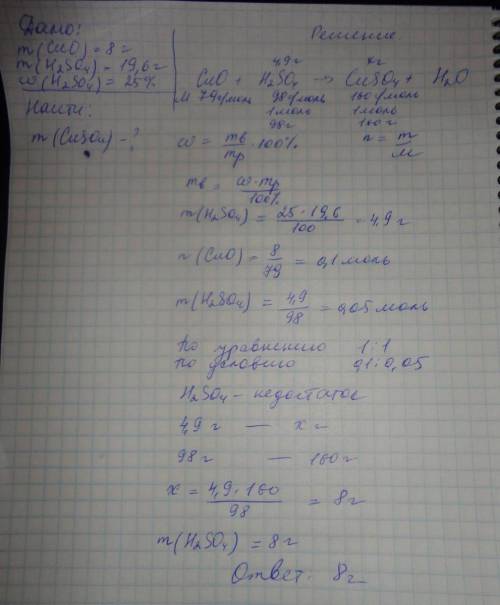 Дано:
m(CuO) = 8 г
m(H₂SO₄) = 19,6 г
ω(H₂SO₄) = 25%
Найти:
m(CuSO₄) - ?
Решение
4,9 г x г
CuO + H₂SO₄ → CuSO₄ + H₂O
M 79 г/моль 98 г/моль 160 г/моль
1 моль 1 моль
98 г 160 г
ω = mв/mр · 100% n = m/M
mв = ω · mр/100%
m(H₂SO₄) = 25 · 19,6/100 = 4,9 г
n(CuO) = 8/79 = 0,1 моль
m(H₂SO₄) = 4,9/98 = 0,05 моль
По уравнению 1:1
по условию 0,1:0,05
H₂SO₄ - недостаток
4,9 г — x г
98 г — 160 г
x = 4,9 · 160/98 = 8 г
m(H₂SO₄) = 8 г
Ответ: 8 г